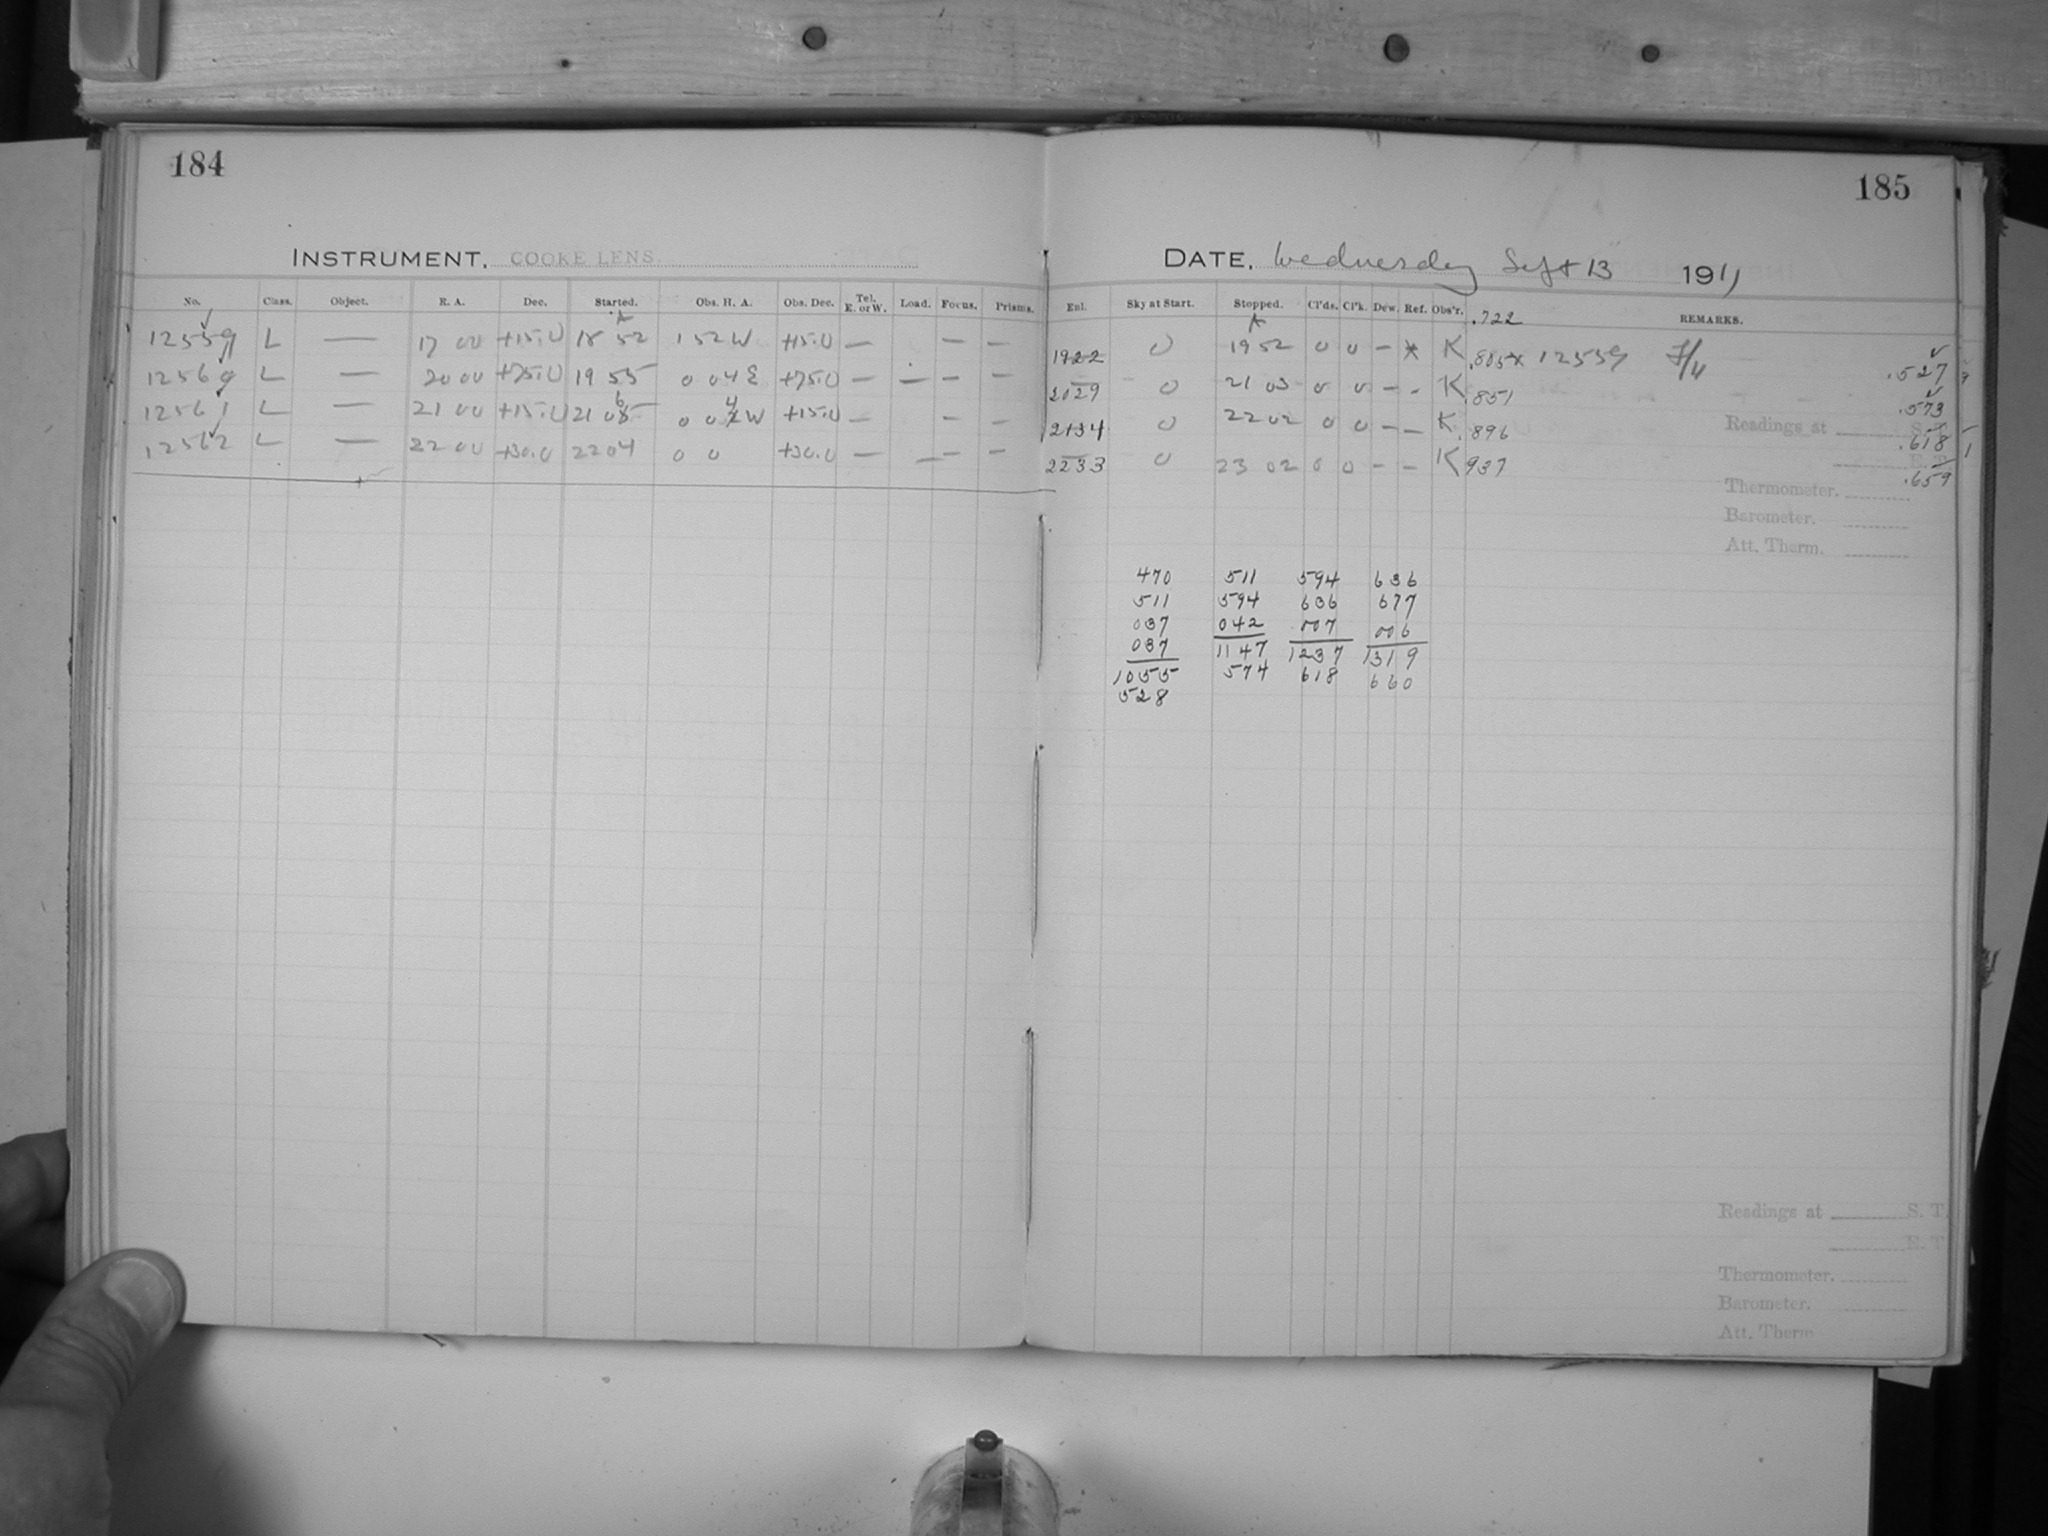 184
INSTRUMENT, COOKE LENS.
No. Class. Object. R. A. Dec. Started. Obs. H. A. Obs. Dec. Tel. E. or W. Load. Focus. Prisms.
12559 L — 17 00 +15.0 18 52 1 52 W +15.0 — — —
12560 L — 20 00 +75.0 19 55 0 04 E +75.0 — — — —
12561 L — 21 00 +15.0 21 06 0 04 W +15.0 — — —
12562 L — 22 00 +30.0 22 04 0 0 +30.0 — — — —
185
DATE, Wednesday Sept 13 1911
Exl. Sky at Start. Stopped. Cl'ds. Cl'k. Dew. Ref. Obs'r. REMARKS.
.722
1922 0 19 52 0 0 — * K .805 * 12559 7/4 .527
2029 0 21 03 0 0 — - K 851 .573
2134 0 22 02 0 0 — — K .896 .618
2233 0 23 02 0 0 - - K 937 .659
Readings at S. T.
E. T.
Thermometer.
Barometer.
Att. Therm.
470 511 594 636
511 594 636 677
037 042 007 006
037 1147 1237 1319
1055 574 618 660
528
Readings at S. T.
E. T.
Thermometer.
Barometer.
Att. Therm